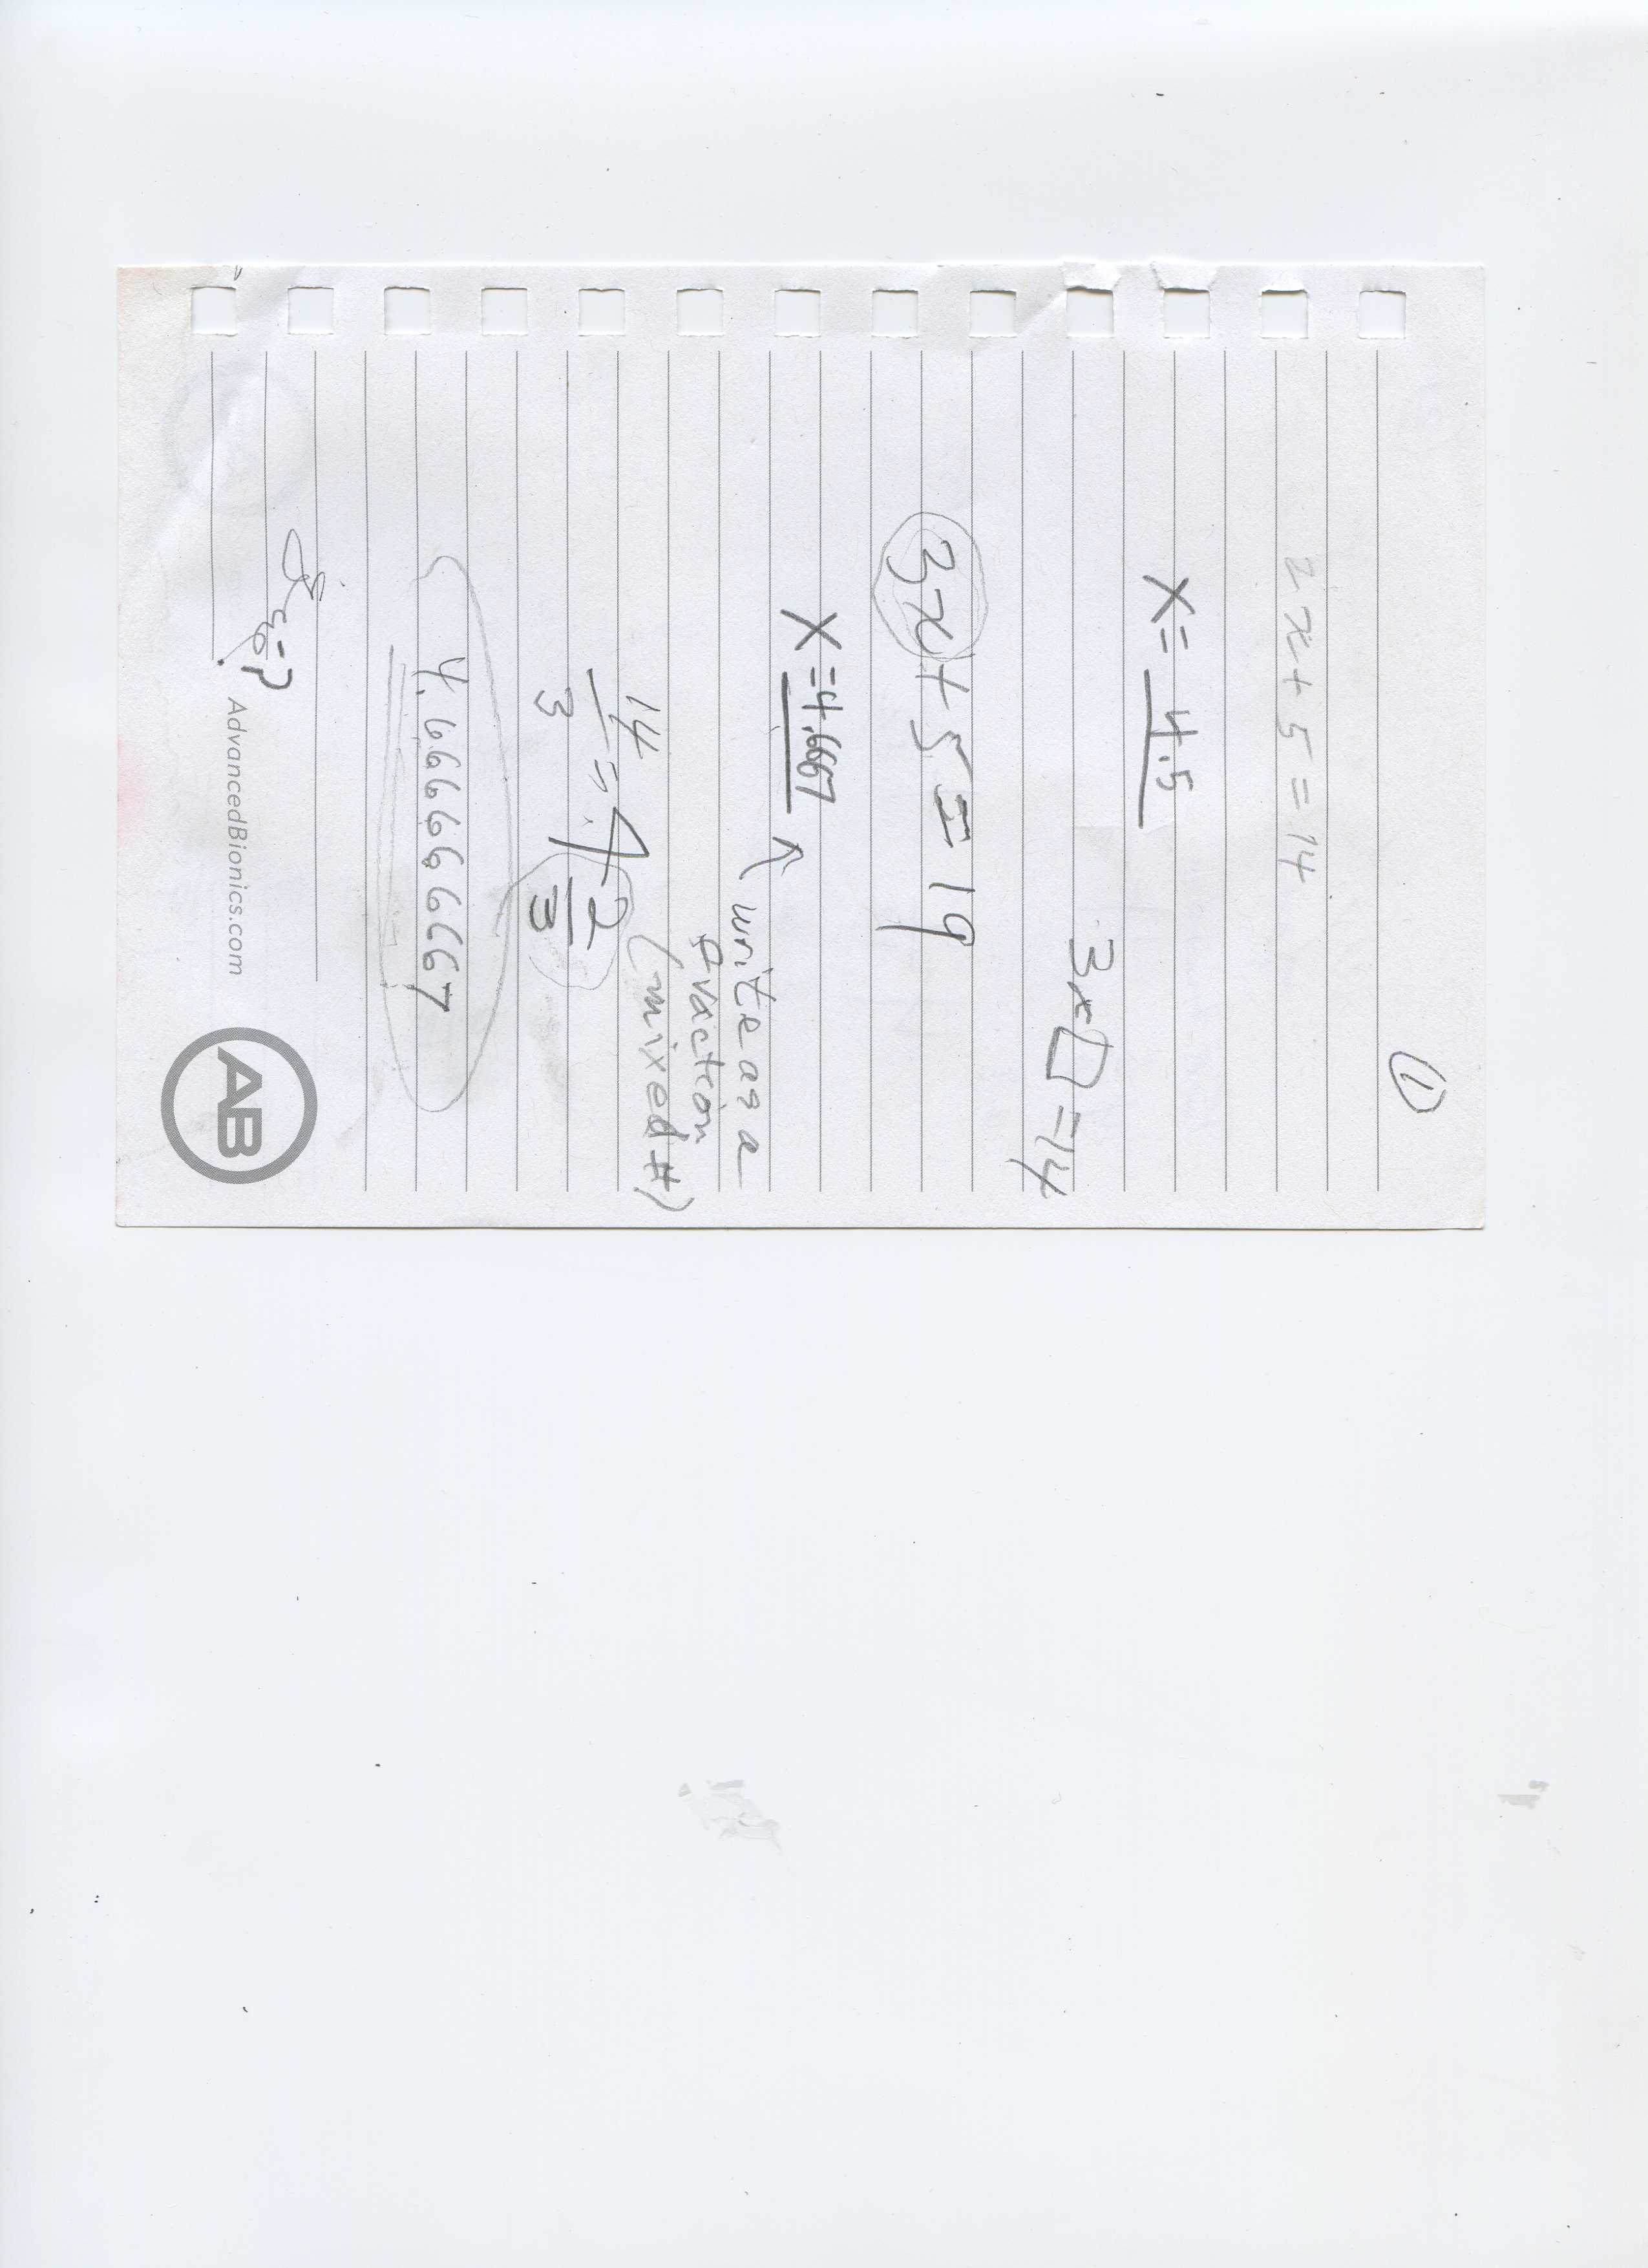 ①
2x + 5 = 14
x = 4.5
3 x □ = 14
3x + 5 = 19
x = 4.6667
↖ write as a
fraction
(mixed #)
14/3 = 4 2/3
4.6666666667
AdvancedBionics.com
AB